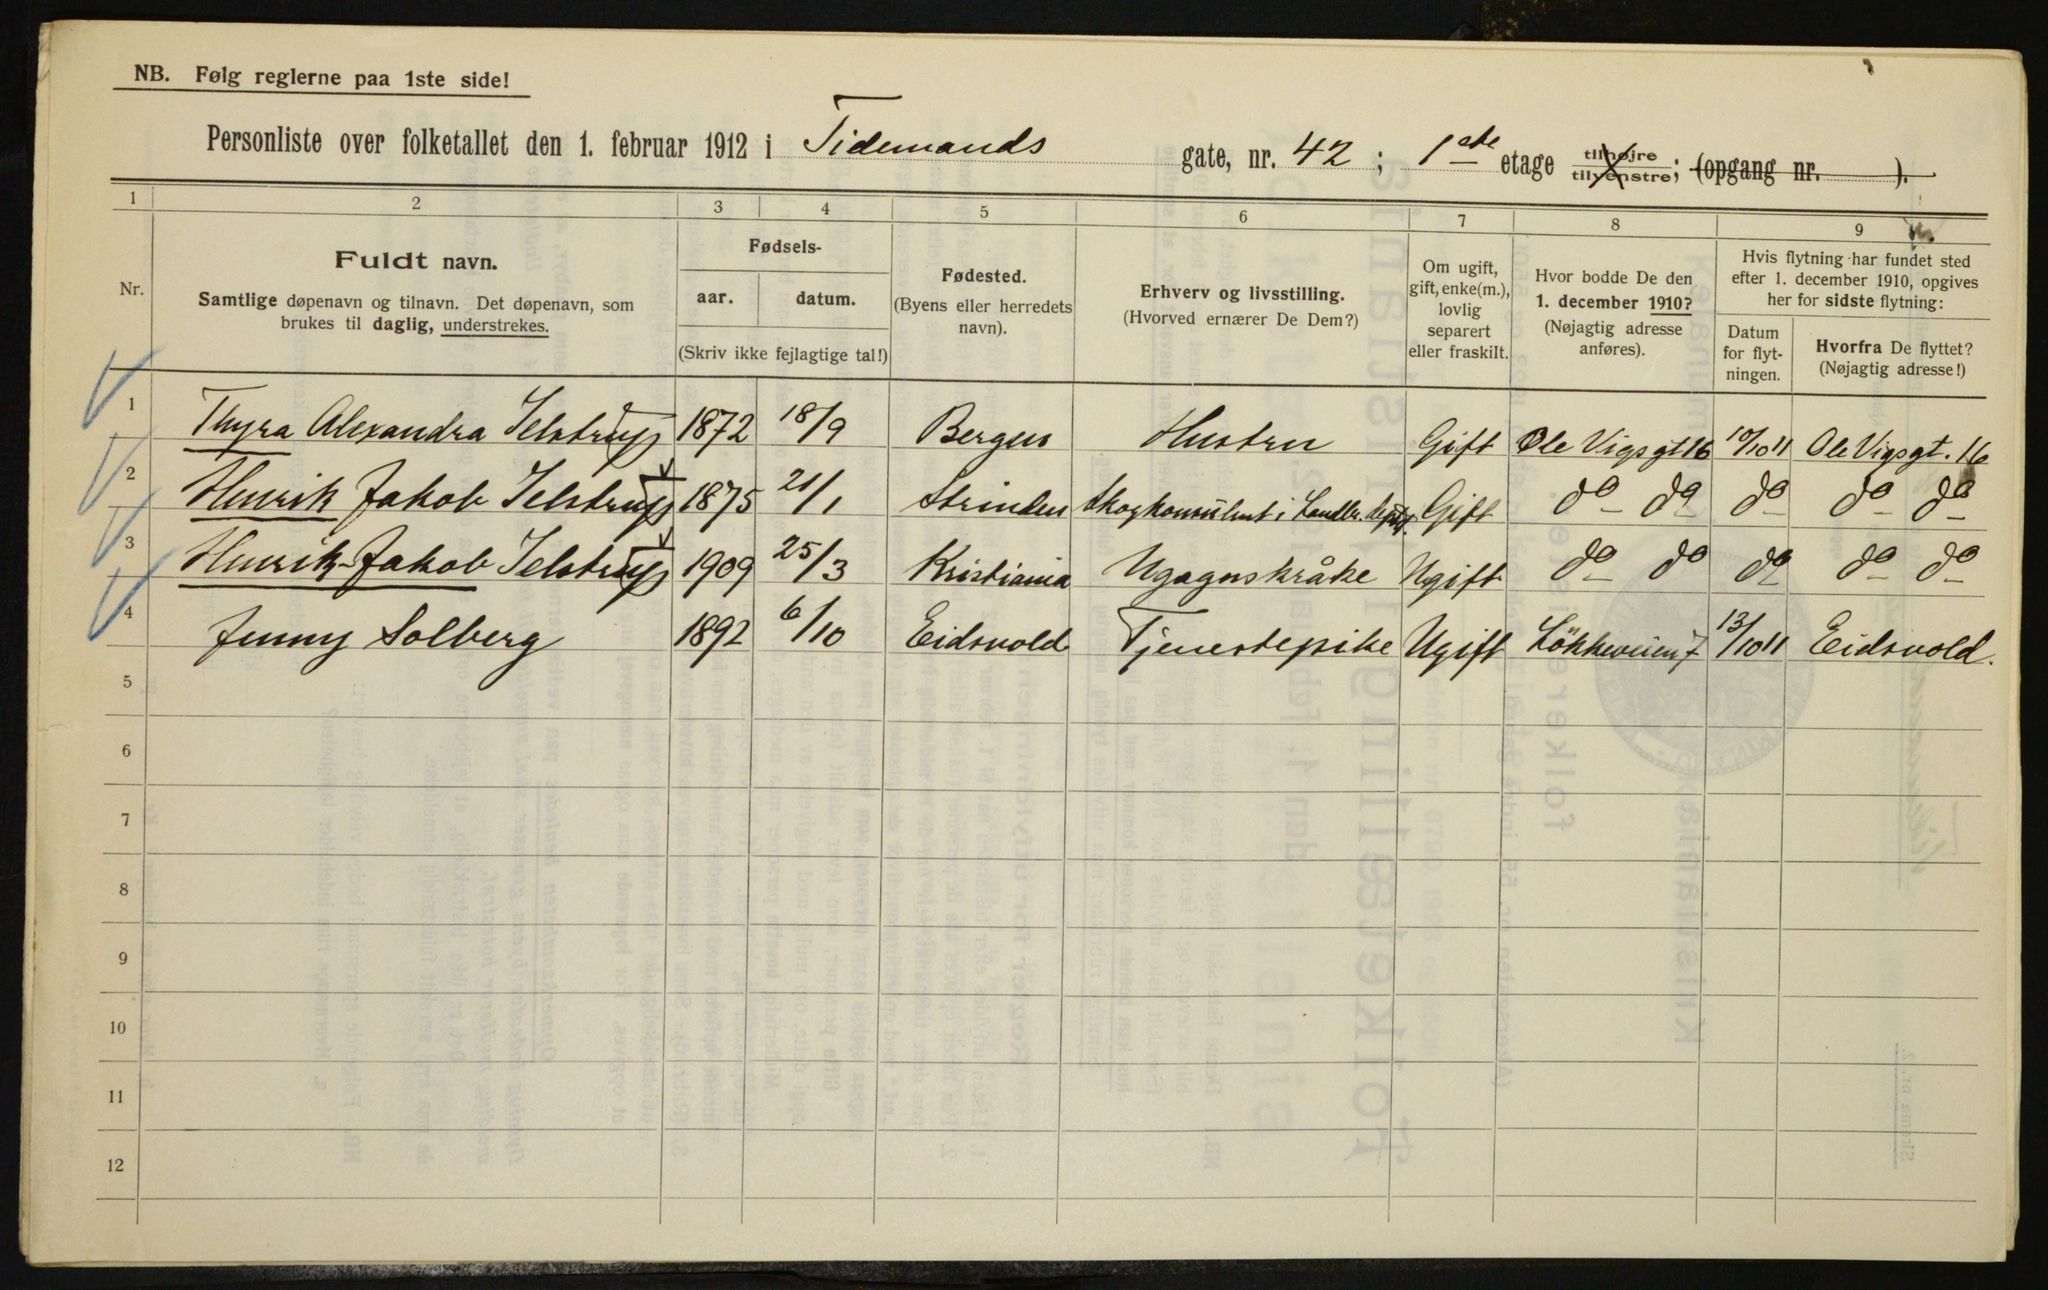 NB. Følg reglerne paa 1ste side!
Personliste over folketallet den 1. februar 1912 i Tidemands gate, nr. 42 ; 1ste etage tilhøjre tilvenstre; (opgang nr. ).
1 2 3 4 5 6 7 8 9
Nr.
Fuldt navn.
Samtlige døpenavn og tilnavn. Det døpenavn, som
brukes til daglig, understrekes.
Fødsels-
aar. datum.
(Skriv ikke fejlagtige tal!)
Fødested.
(Byens eller herredets
navn).
Erhverv og livsstilling.
(Hvorved ernærer De Dem?)
Om ugift,
gift, enke(m.),
lovlig
separert
eller fraskilt.
Hvor bodde De den
1. december 1910?
(Nøjagtig adresse
anføres).
Hvis flytning har fundet sted
efter 1. december 1910, opgives
her for sidste flytning:
Datum
for flyt-
ningen.
Hvorfra De flyttet?
(Nøjagtig adresse!)
1 Thyra Alexandra Jelstrup 1872 18/9 Bergen Hustru Gift Ole Vigsgt 16 10/10 11 Ole Vigsgt. 16
2 Henrik Jakob Jelstrup 1875 21/1 Strinden Skogkonsulent i Landbr. dept. Gift do do do do do
3 Henrik-Jakob Jelstrup 1909 25/3 Kristiania Ugagnskråke Ugift do do do do do
4 Jenny Solberg 1892 6/10 Eidsvold Tjenestepike Ugift Løkkeveien 7 13/10 11 Eidsvold.
5
6
7
8
9
10
11
12